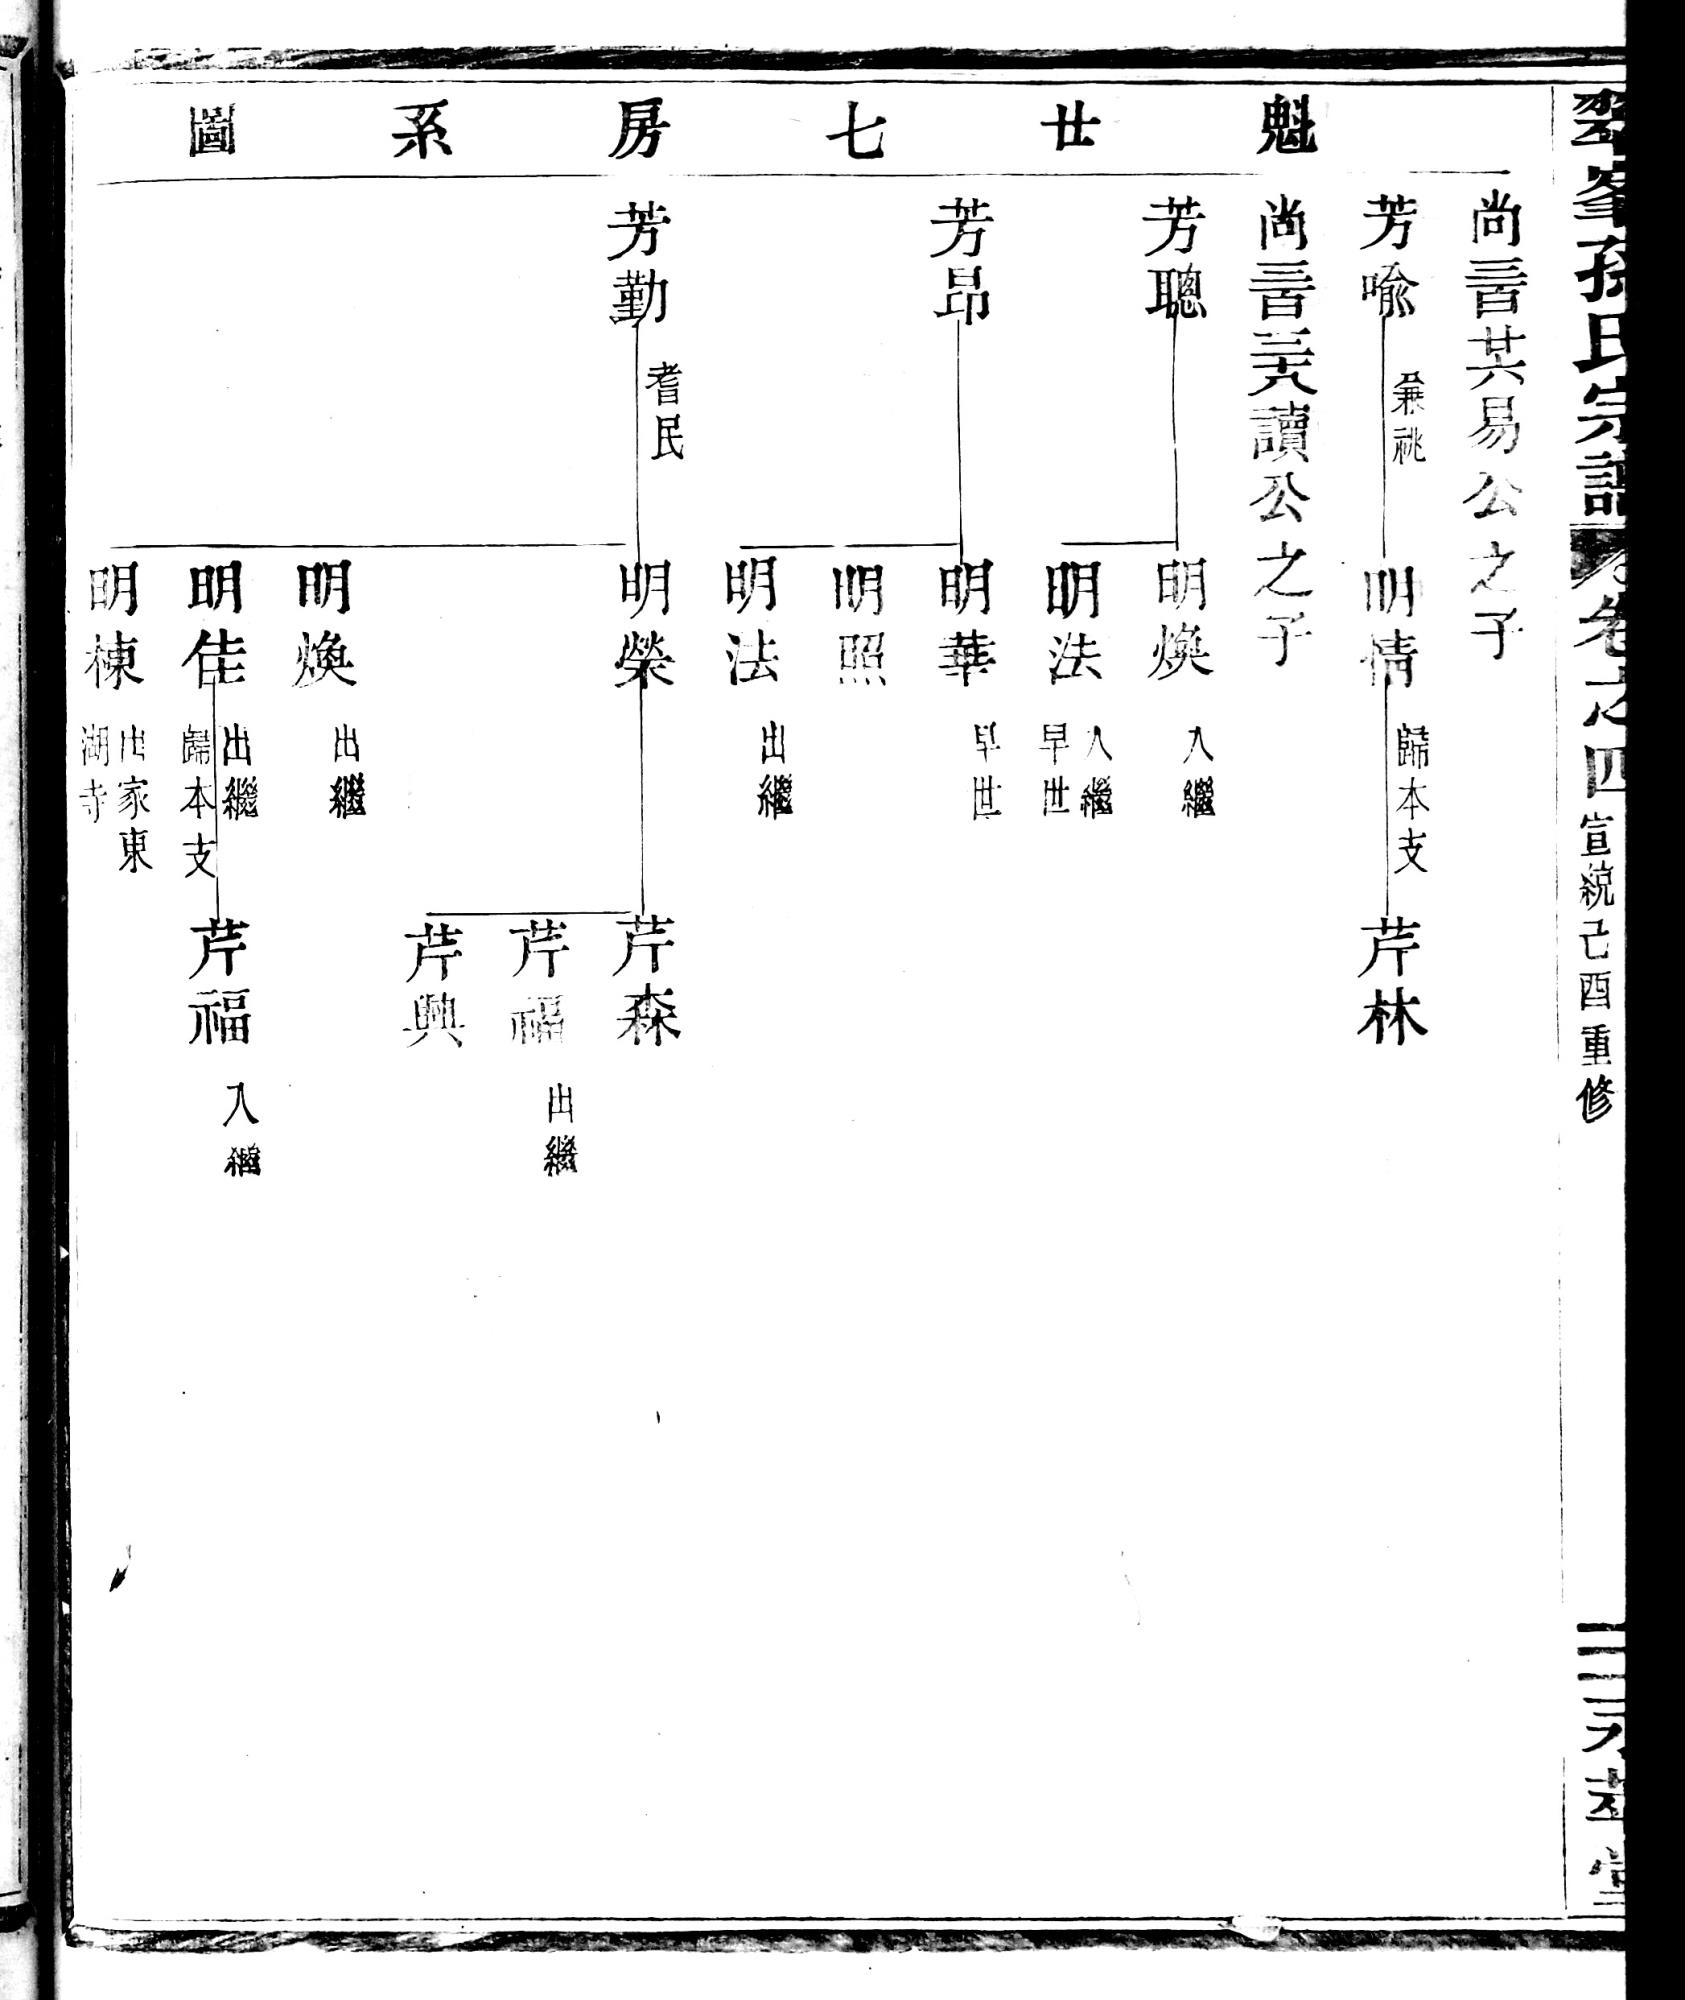 翠峯孫氏宗譜 卷之四 宣統己酉重修
魁廿七房系圖
尚三百廿六易公之子
芳喩 兼祧
明情 歸本支
芹林
尚三百三十八讀公之子
芳聰
明煥 入繼
明法 入繼早世
芳昂
明華 早世
明照
明法 出繼
芳勤 耆民
明榮
芹森
芹福 出繼
芹興
明煥 出繼
明佳 出繼歸本支
芹福 入繼
明棟 出家東湖寺